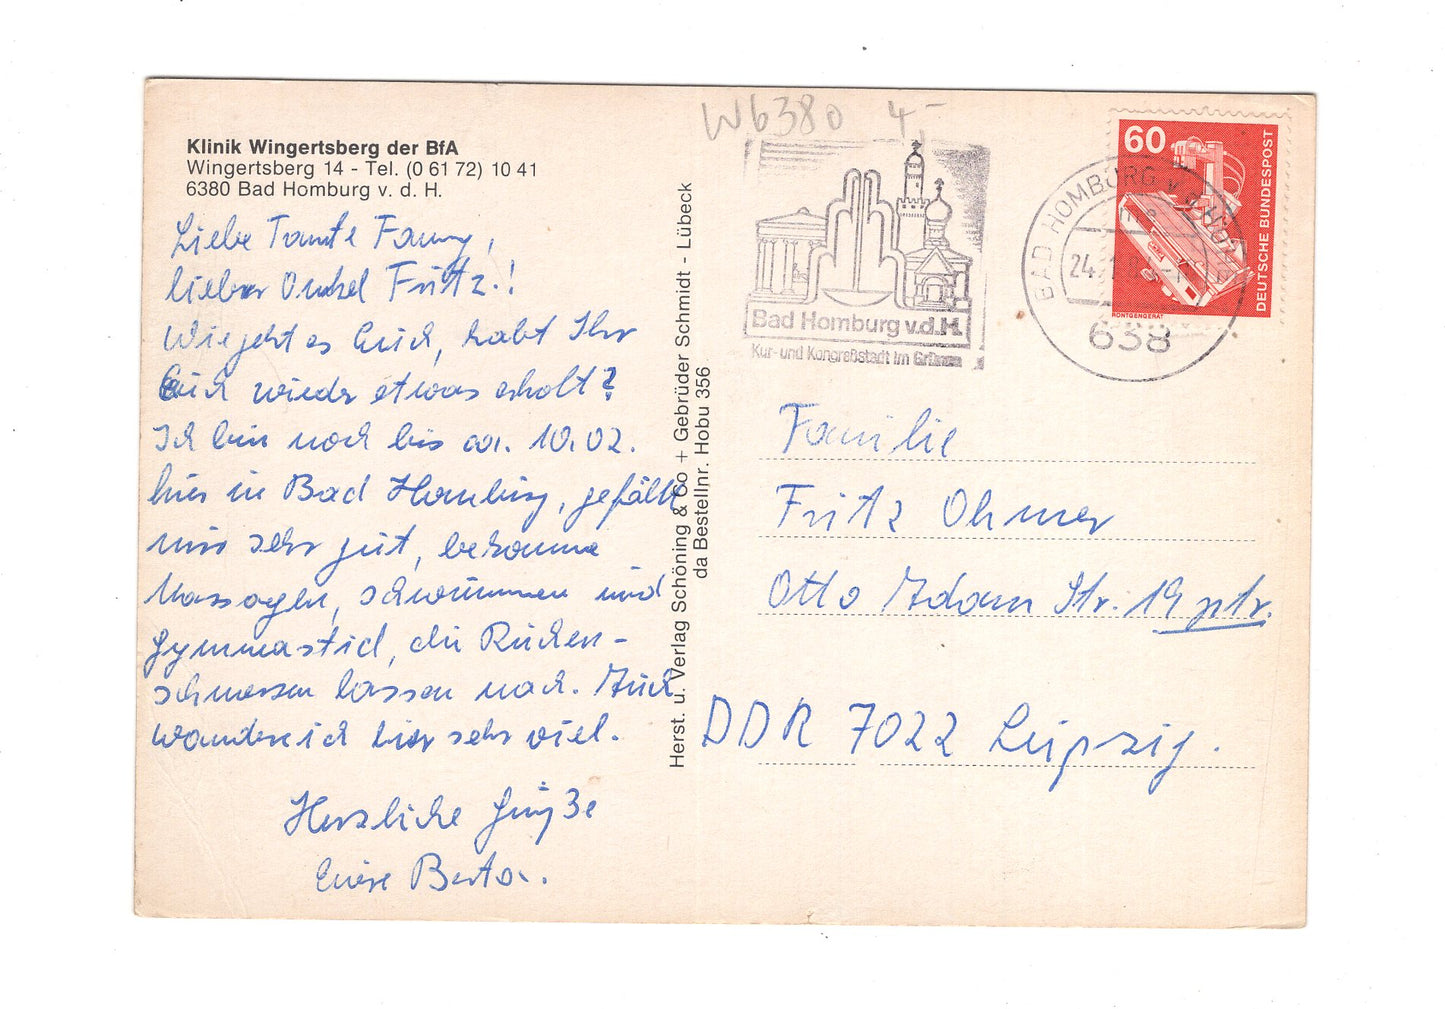 Klinik Wingertsberg der BfA
Wingertsberg 14 - Tel. (0 61 72) 10 41
6380 Bad Homburg v. d. H.
Liebe Tante Fanny,
lieber Onkel Fritz.!
Wie geht es Euch, habt Ihr
Euch wieder etwas erholt?
Ich bin noch bis ca. 10.02.
hier in Bad Homburg, gefällt
mir sehr gut, bekomme
Massagen, schwimmen und
Gymnastik, die Rücken-
schmerzen lassen nach. Auch
wandere ich hier sehr viel.
Herzliche Grüße
Eure Berta.
Herst. u. Verlag Schöning & Co + Gebrüder Schmidt - Lübeck
da Bestellnr. Hobu 356
W6380 4,-
Bad Homburg v.d.H.
Kur- und Kongreßstadt im Grünen
BAD HOMBURG v d H
24.
638
60
DEUTSCHE BUNDESPOST
RÖNTGENGERÄT
Familie
Fritz Ohmer
Otto Adam Str. 19 ptr.
DDR 7022 Leipzig.